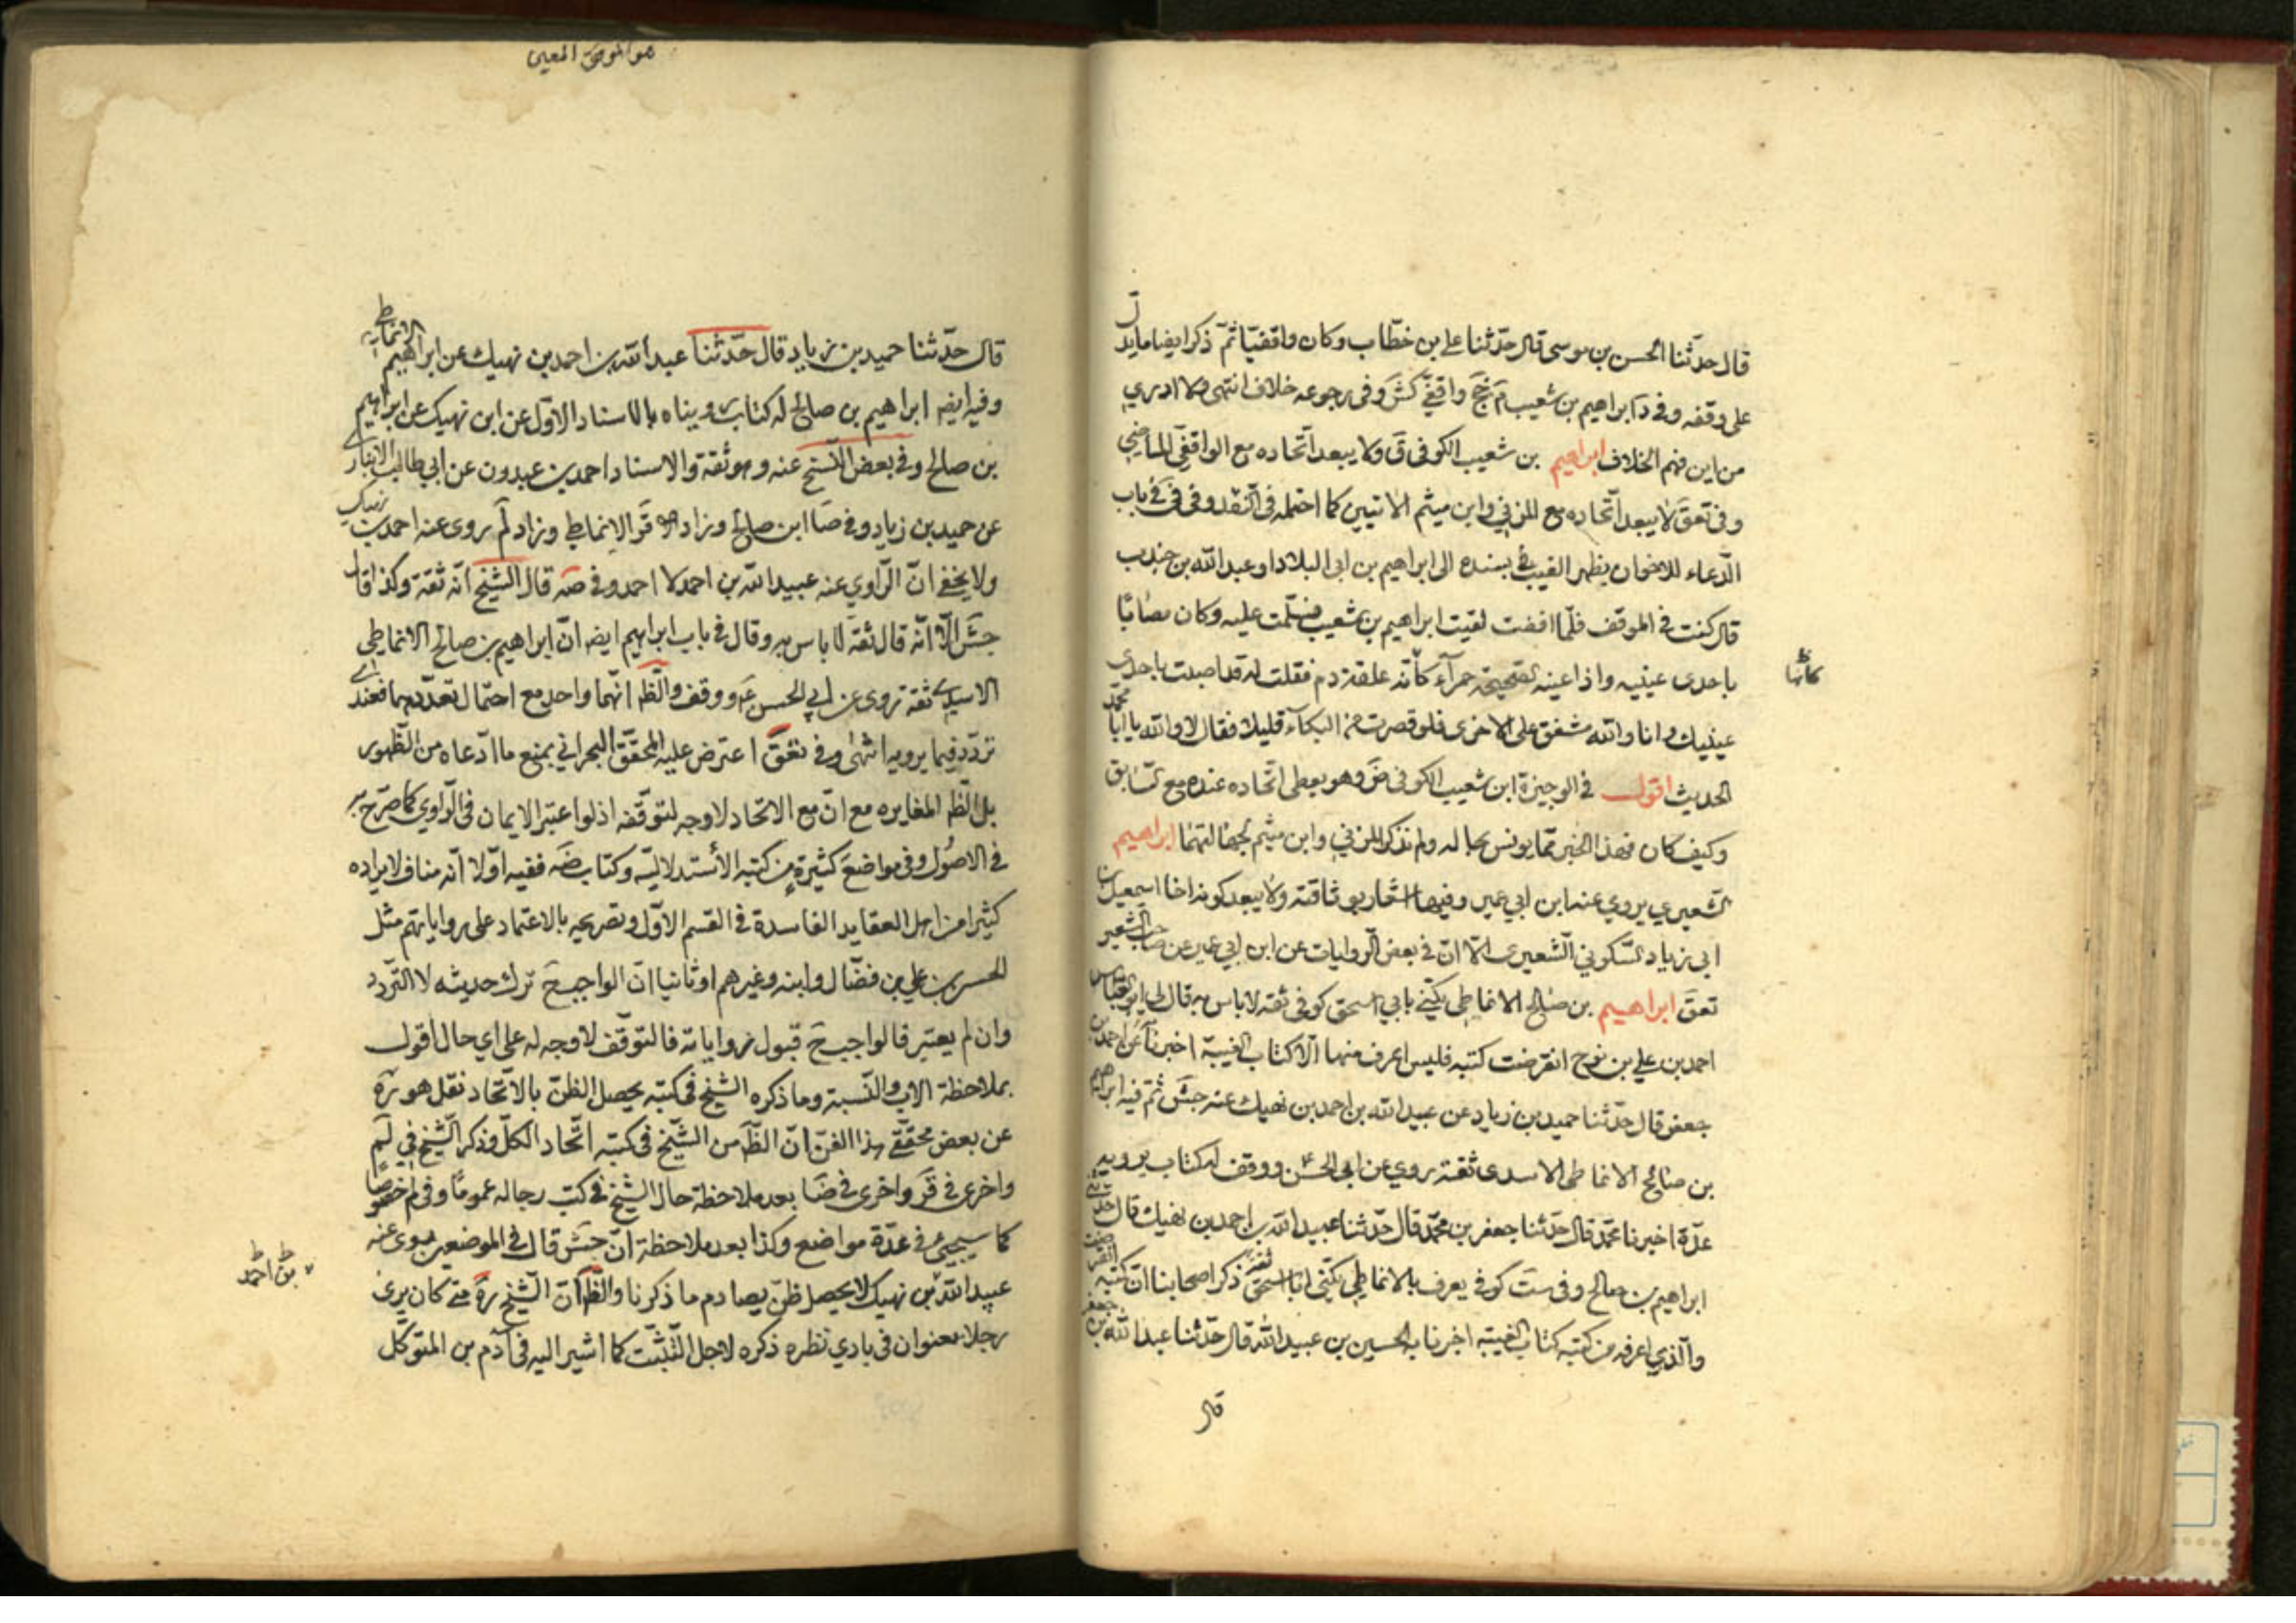 قال حدثنا الحسن بن موسى قال حدثنا علي بن خطاب وكان واقفيا ثم ذكر ايضا ما يدل
على وقفه وفي د ابراهيم بن شعيب م جخ واقفي كش وفي رجوعه خلاف انتهى ولا ادري
من اين فهم الخلاف ابراهيم بن شعيب الكوفي ق ولا يبعد اتحاده مع الواقفي الماضي
وفي تعق لا يبعد اتحاده مع المزني وابن ميثم الاتيين كما احتمله في النقد وفي في باب
الدعاء للاخوان بظهر الغيب بسنده الى ابراهيم بن ابي البلاد او عبد الله بن جندب
قال كنت في الموقف فلما افضت لقيت ابراهيم بن شعيب فسلمت عليه وكان مصابا
كانها
باحدى عينيه واذا عينه الصحيحة حمرآء كانه علقة دم فقلت له قد اصبت باحدى
عينيك وانا والله مشفق على الاخرى فلو قصرت من البكآء قليلا فقال لا والله يا ابا محمد
الحديث اقول في الوجيزة ابن شعيب الكوفي ض وهو يعطى اتحاده عنده مع السابق
وكيف كان فهذا الخبر مما يونس بحاله ولم نذكر المزني وابن ميثم لجهالتهما ابراهيم
الشعيري يروي عنه ابن ابي عمير وفيها اشعار بوثاقته ولا يبعد كونه اخا اسمعيل بن
ابي زياد السكوني الشعيرى الا ان في بعض الروايات عن ابن ابي عمير عن صاحب الشعير
تعق ابراهيم بن صالح الانماطي يكنى بابي اسحق كوفي ثقة لا باس به قال لي ابو العباس
احمد بن علي بن نوح انقرضت كتبه فليس اعرف منها الا كتاب الغيبة اخبرنا عن احمد بن
جعفر قال حدثنا حميد بن زياد عن عبيد الله بن احمد بن نهيك عنه جش ثم فيه ابراهيم
بن صالح الانماطي الاسدى ثقة روي عن ابى الحسن ووقف له كتاب يرويه
عدة اخبرنا محمد قال حدثنا جعفر بن محمد قال حدثنا عبيد الله بن احمد بن نهيك قال حدثنا
ابراهيم بن صالح وفي ست كوفي يعرف بالانماطي يكنى ابا اسحق ثقة ذكر اصحابنا ان كتبه انقرضت
والذي اعرفه من كتبه كتاب الغيبة اخبرنا به الحسين بن عبيد الله قال حدثنا عبد الله بن جعفر
قال
هو الموفق المعين
قال حدثنا حميد بن زياد قال حدثنا عبد الله بن احمد بن نهيك عن ابراهيم الانماطي
وفيه ايضه ابراهيم بن صالح له كتاب رويناه بالاسناد الاول عن ابن نهيك عن ابراهيم
بن صالح وفي بعض النسخ عنه وهو ثقة والاسناد احمد بن عبدون عن ابي طالب الانباري
عن حميد بن زياد وفي صا ابن صالح وزاد قر الانماطي وزاد لم روى عنه احمد بن نهيك
ولا يخفى ان الراوي عنه عبيد الله بن احمد لا احمد وفي صه قال الشيخ انه ثقة وكذا قال
جش الا انه قال ثقة لا باس به وقال في باب ابراهيم ايضه ان ابراهيم بن صالح الانماطي
الاسدي ثقة روى عن ابي الحسن ع ووقف والظ انهما واحد مع احتمال تعددهما فعندي
تردد فيما يرويه انتهى وفي تعق اعترض عليه المحقق البحراني بمنع ما ادعاه من الظهور
بل الظ المغايره مع ان مع الاتحاد لا وجه لتوقفه اذ لو اعتبر الايمان في الراوي كما صرح به
في الاصول وفي مواضع كثيرة من كتبه الاستدلالية وكتاب صه ففيه اولا انه مناف لايراده
كثيرا من اهل العقايد الفاسدة في القسم الاول وتصريحه بالاعتماد على رواياتهم مثل
الحسن بن علي بن فضال وابنه وغيرهم او ثانيا ان الواجب ح ترك حديثه لا التردد
وان لم يعتبر فالواجب ح قبول رواياته فالتوقف لا وجه له على اي حال اقول
بملاحظة الاب والنسبة وما ذكره الشيخ في كتبه يحصل الظن بالاتحاد نقل هو ره
عن بعض محققي هذا الفن ان الظ من الشيخ في كتبه اتحاد الكل وذكر الشيخ في لم
واخرى في قر واخرى في ضا بعد ملاحظة حال الشيخ في كتب رجاله عموما وفي لم خصوصا
كما سيجيئ في عدة مواضع وكذا بعد ملاحظة ان جش قال في الموضعين روى عنه
بن احمد
عبيد الله بن نهيك لا يحصل ظن يصادم ما ذكرنا والظ ان الشيخ ره متى كان يرى
رجلا بعنوان في بادي نظره ذكره لاجل التثبت كما اشير اليه في آدم بن المتوكل